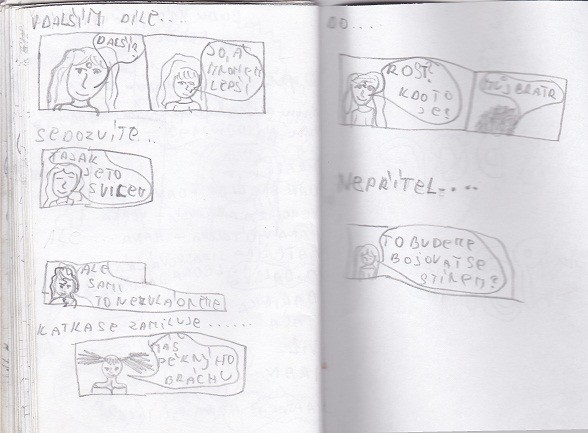 V DALŠÍM DÍLE...
DALŠÍ?
JO, A
MNOHEM
LEPŠÍ
SE DOZVÍTE...
JAK
JE TO
S VILEM
ALE
SAMI
TO NEZVLÁDNEME
KATKA SE ZAMILUJE......
MÁŠ
PĚKNÝHO
BRÁCHU
DO...
ROSŤ?
KDO TO
JE?
MŮJ BRATR
NEPŘÍTEL....
TO BUDEME
BOJOVAT SE
STÍNEM?